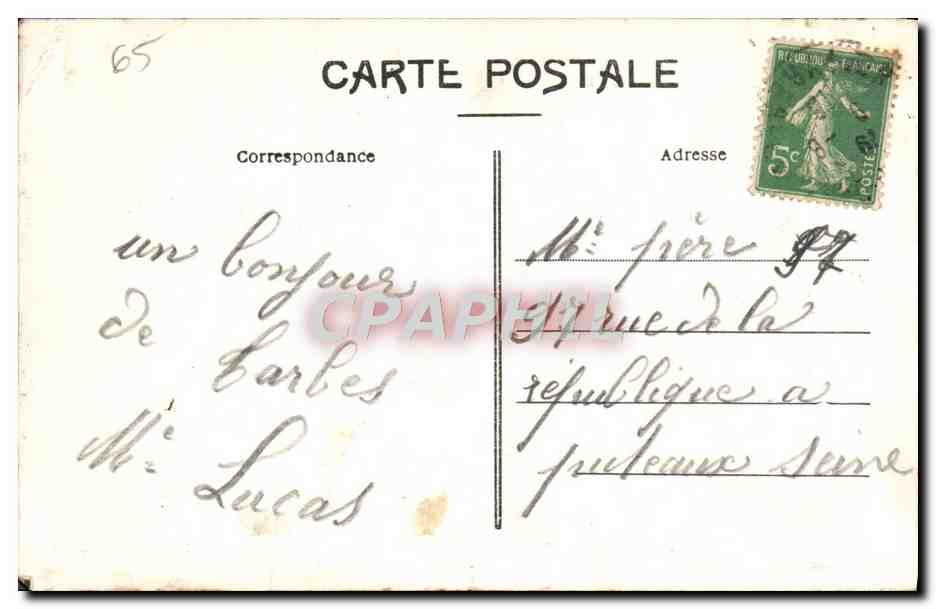 65
CARTE POSTALE
REPUBLIQUE FRANÇAISE
5c
POSTES
Correspondance
Adresse
un bonjour
de
Tarbes
Me
Lucas
Me père 97
97 rue de la
république a
puteaux seine
CPAPHIL